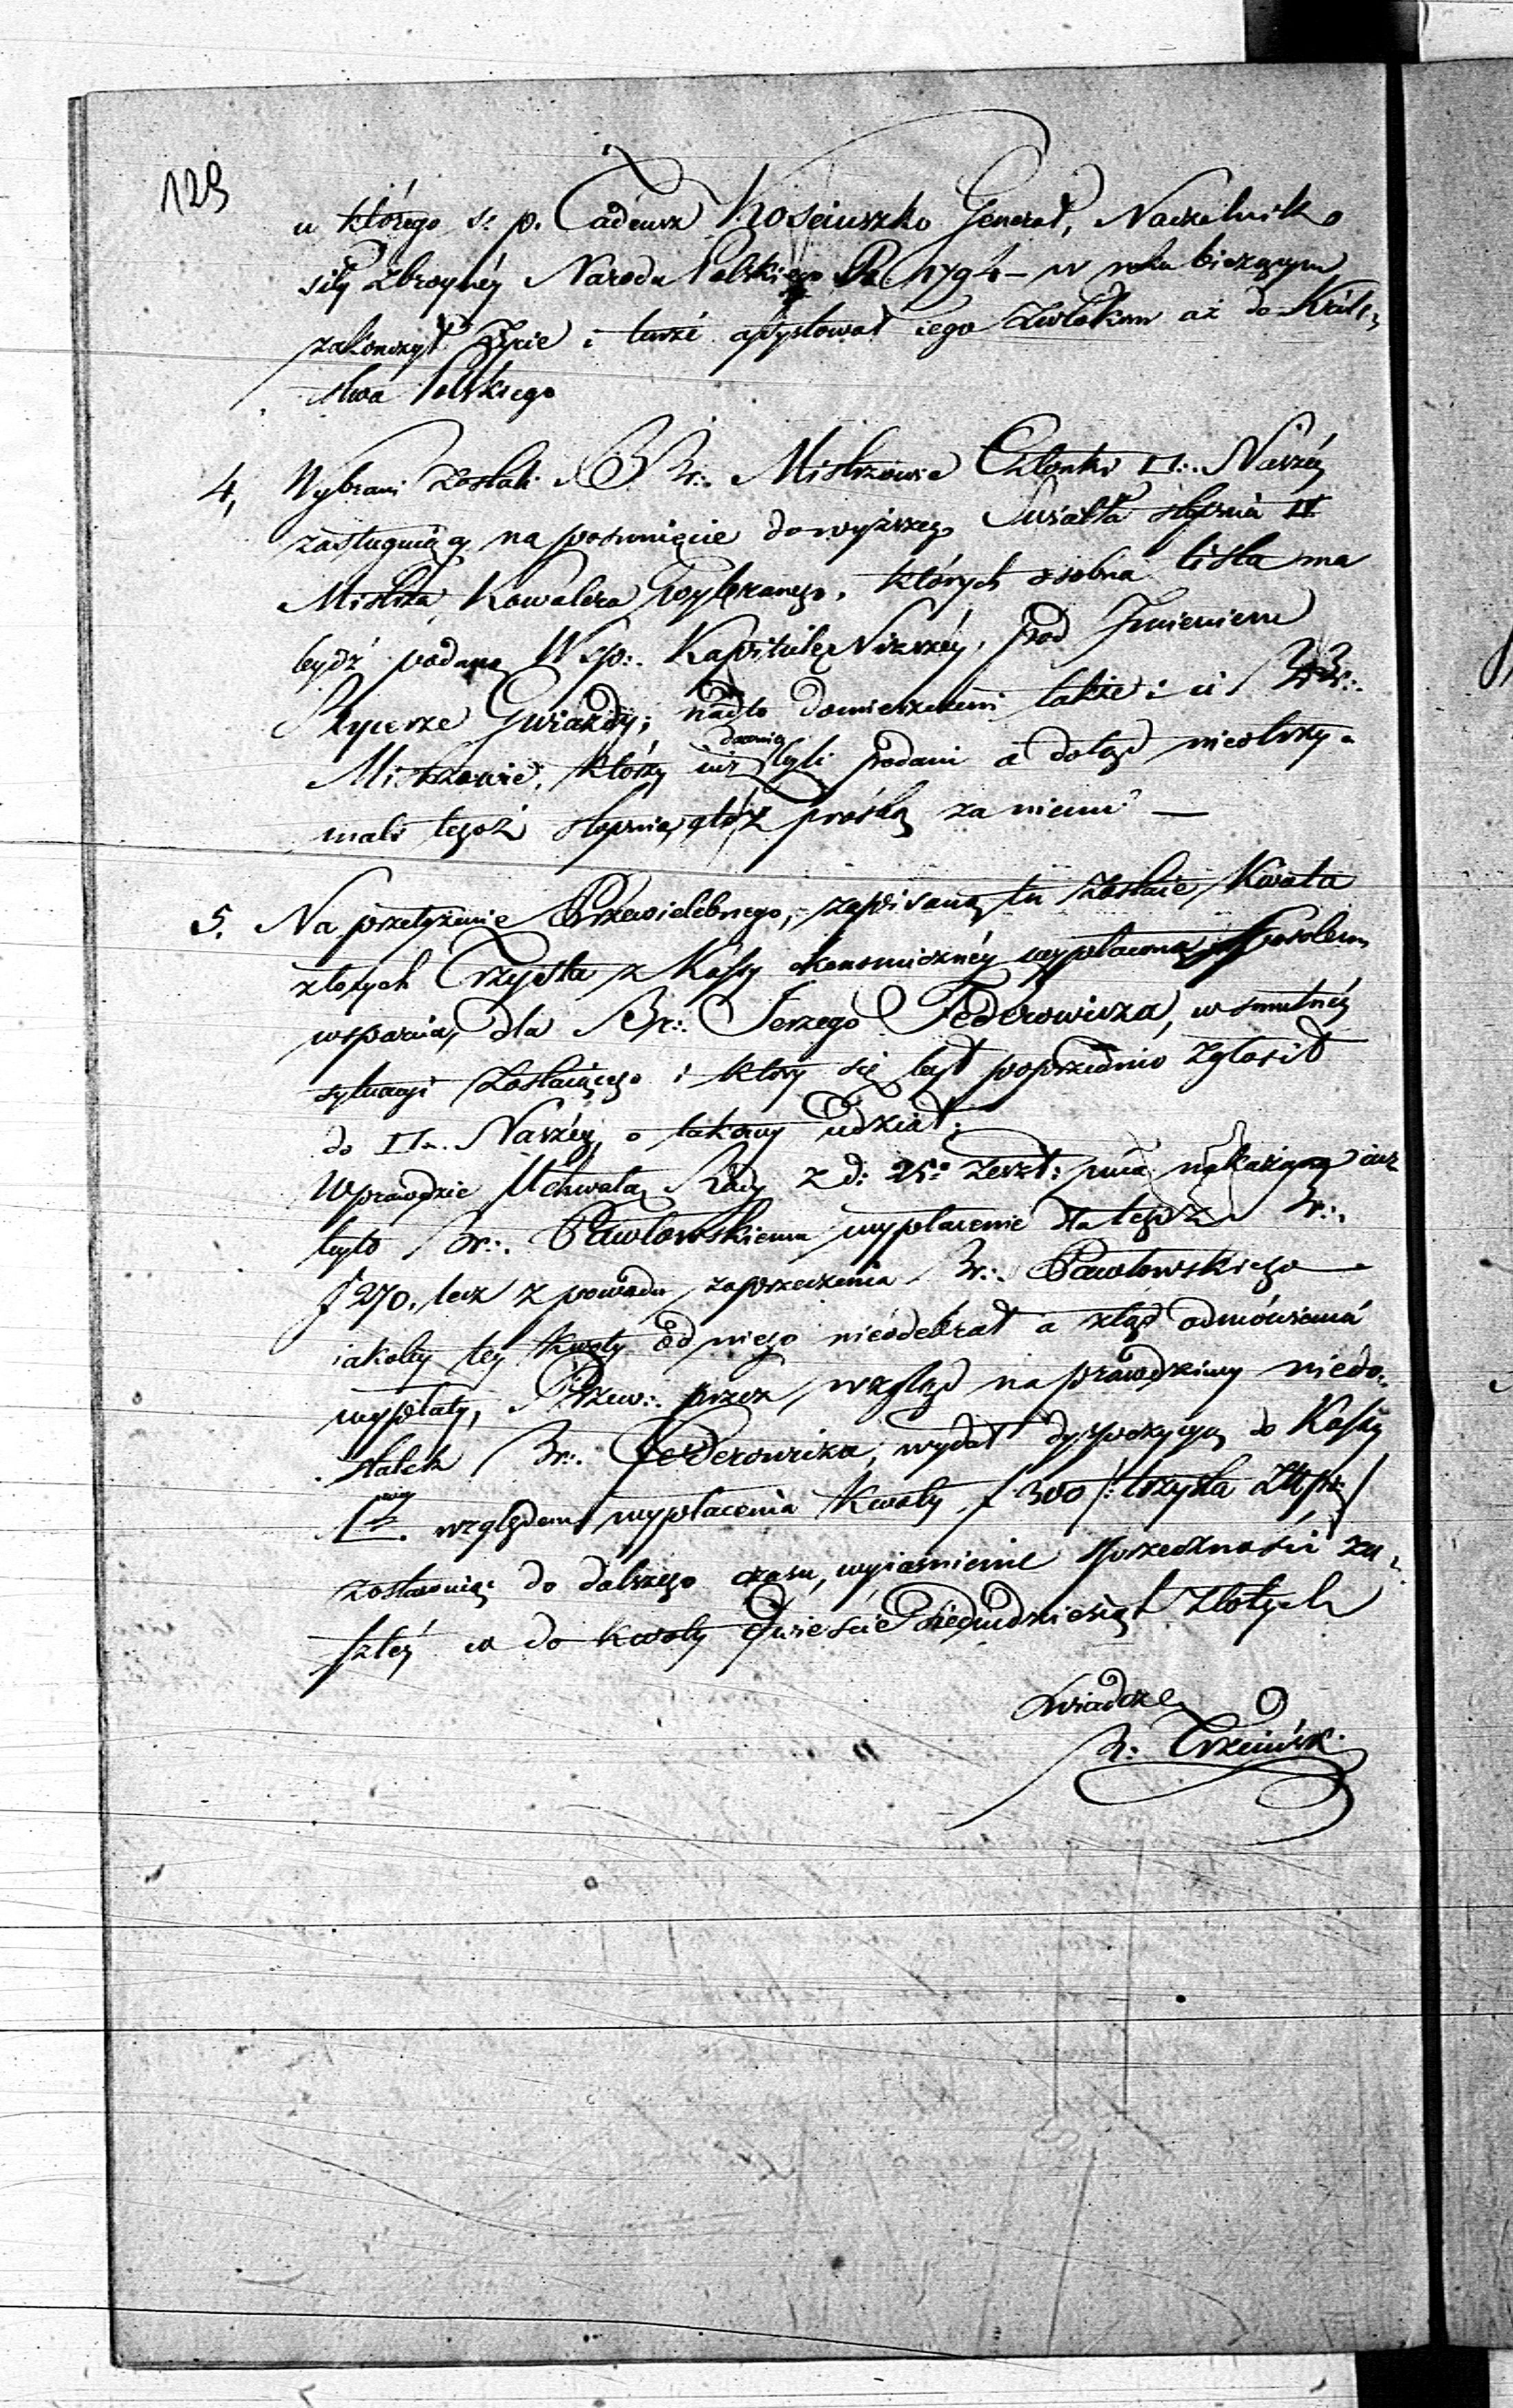 129
u którego ś: p. Tadeusz Kosciuszko Generał, Naczelnik
siły zbroyney Narodu Polskiego Ru 1794 – w roku bieżącym
zakonczył życie i tenże assystował iego zwłokom aż do Króle-
stwa Polskiego
4, Wybrani zostali BBr∴ Mistrzowie Członki □∴ Naszéy
zasługuiący na posunięcie do wyższego Swiatła stopnia IV
Mistrza Kawalera Wybranego, których osobna lista ma
bydź podana Wsp∴ Kapitulę Niższéy, pod Imieniem
Rycerze Gwiazdy; nadto domieszczeni także i ci BBr∴
Mistrzowie, którzy iuż dawniéy byli podani a dotąd nieotrzy-
mali tegoż stopnia, prośbą za niemi —
5. Na przełożenie Przewielebnego, zapisaną tu zostaie Kwota
złotych Trzysta z Kassy ekonomicznéy wypłacona sposobem
wsparcia, dla Br∴ Jerzego Federowicza, w smutnéy
sytuacyi zostaiącego i który się był poprzednio zgłosił
do □∴ Naszéy o takowy udział.
Wprawdzie Uchwałą Rady z d: 25° zeszł: mca nakazane iuż
było Br∴ Pawłowskiemu wypłacenie dla tegoż Br∴
f 270, lecz z powodu zaprzeczenia Br∴ Pawłowskiego
iakoby tey kwoty od niego nieodebrał a ztąd odmówienia
wypłaty, Przew∴ przez wzgląd na prawdziwy niedo-
statek Br∴ Federowicza, wydał dyspozycyą do Kassy
względem wypłacenia Kwoty f 300 /: trzysta Złpo: /
zostawuiąc do dalszego czasu, wyiaśnienie sprzeczności za-
szłéy co do kwoty Dwieście Siedmdziesiąt Złotych
Zwiadcze
Br: Trzciński